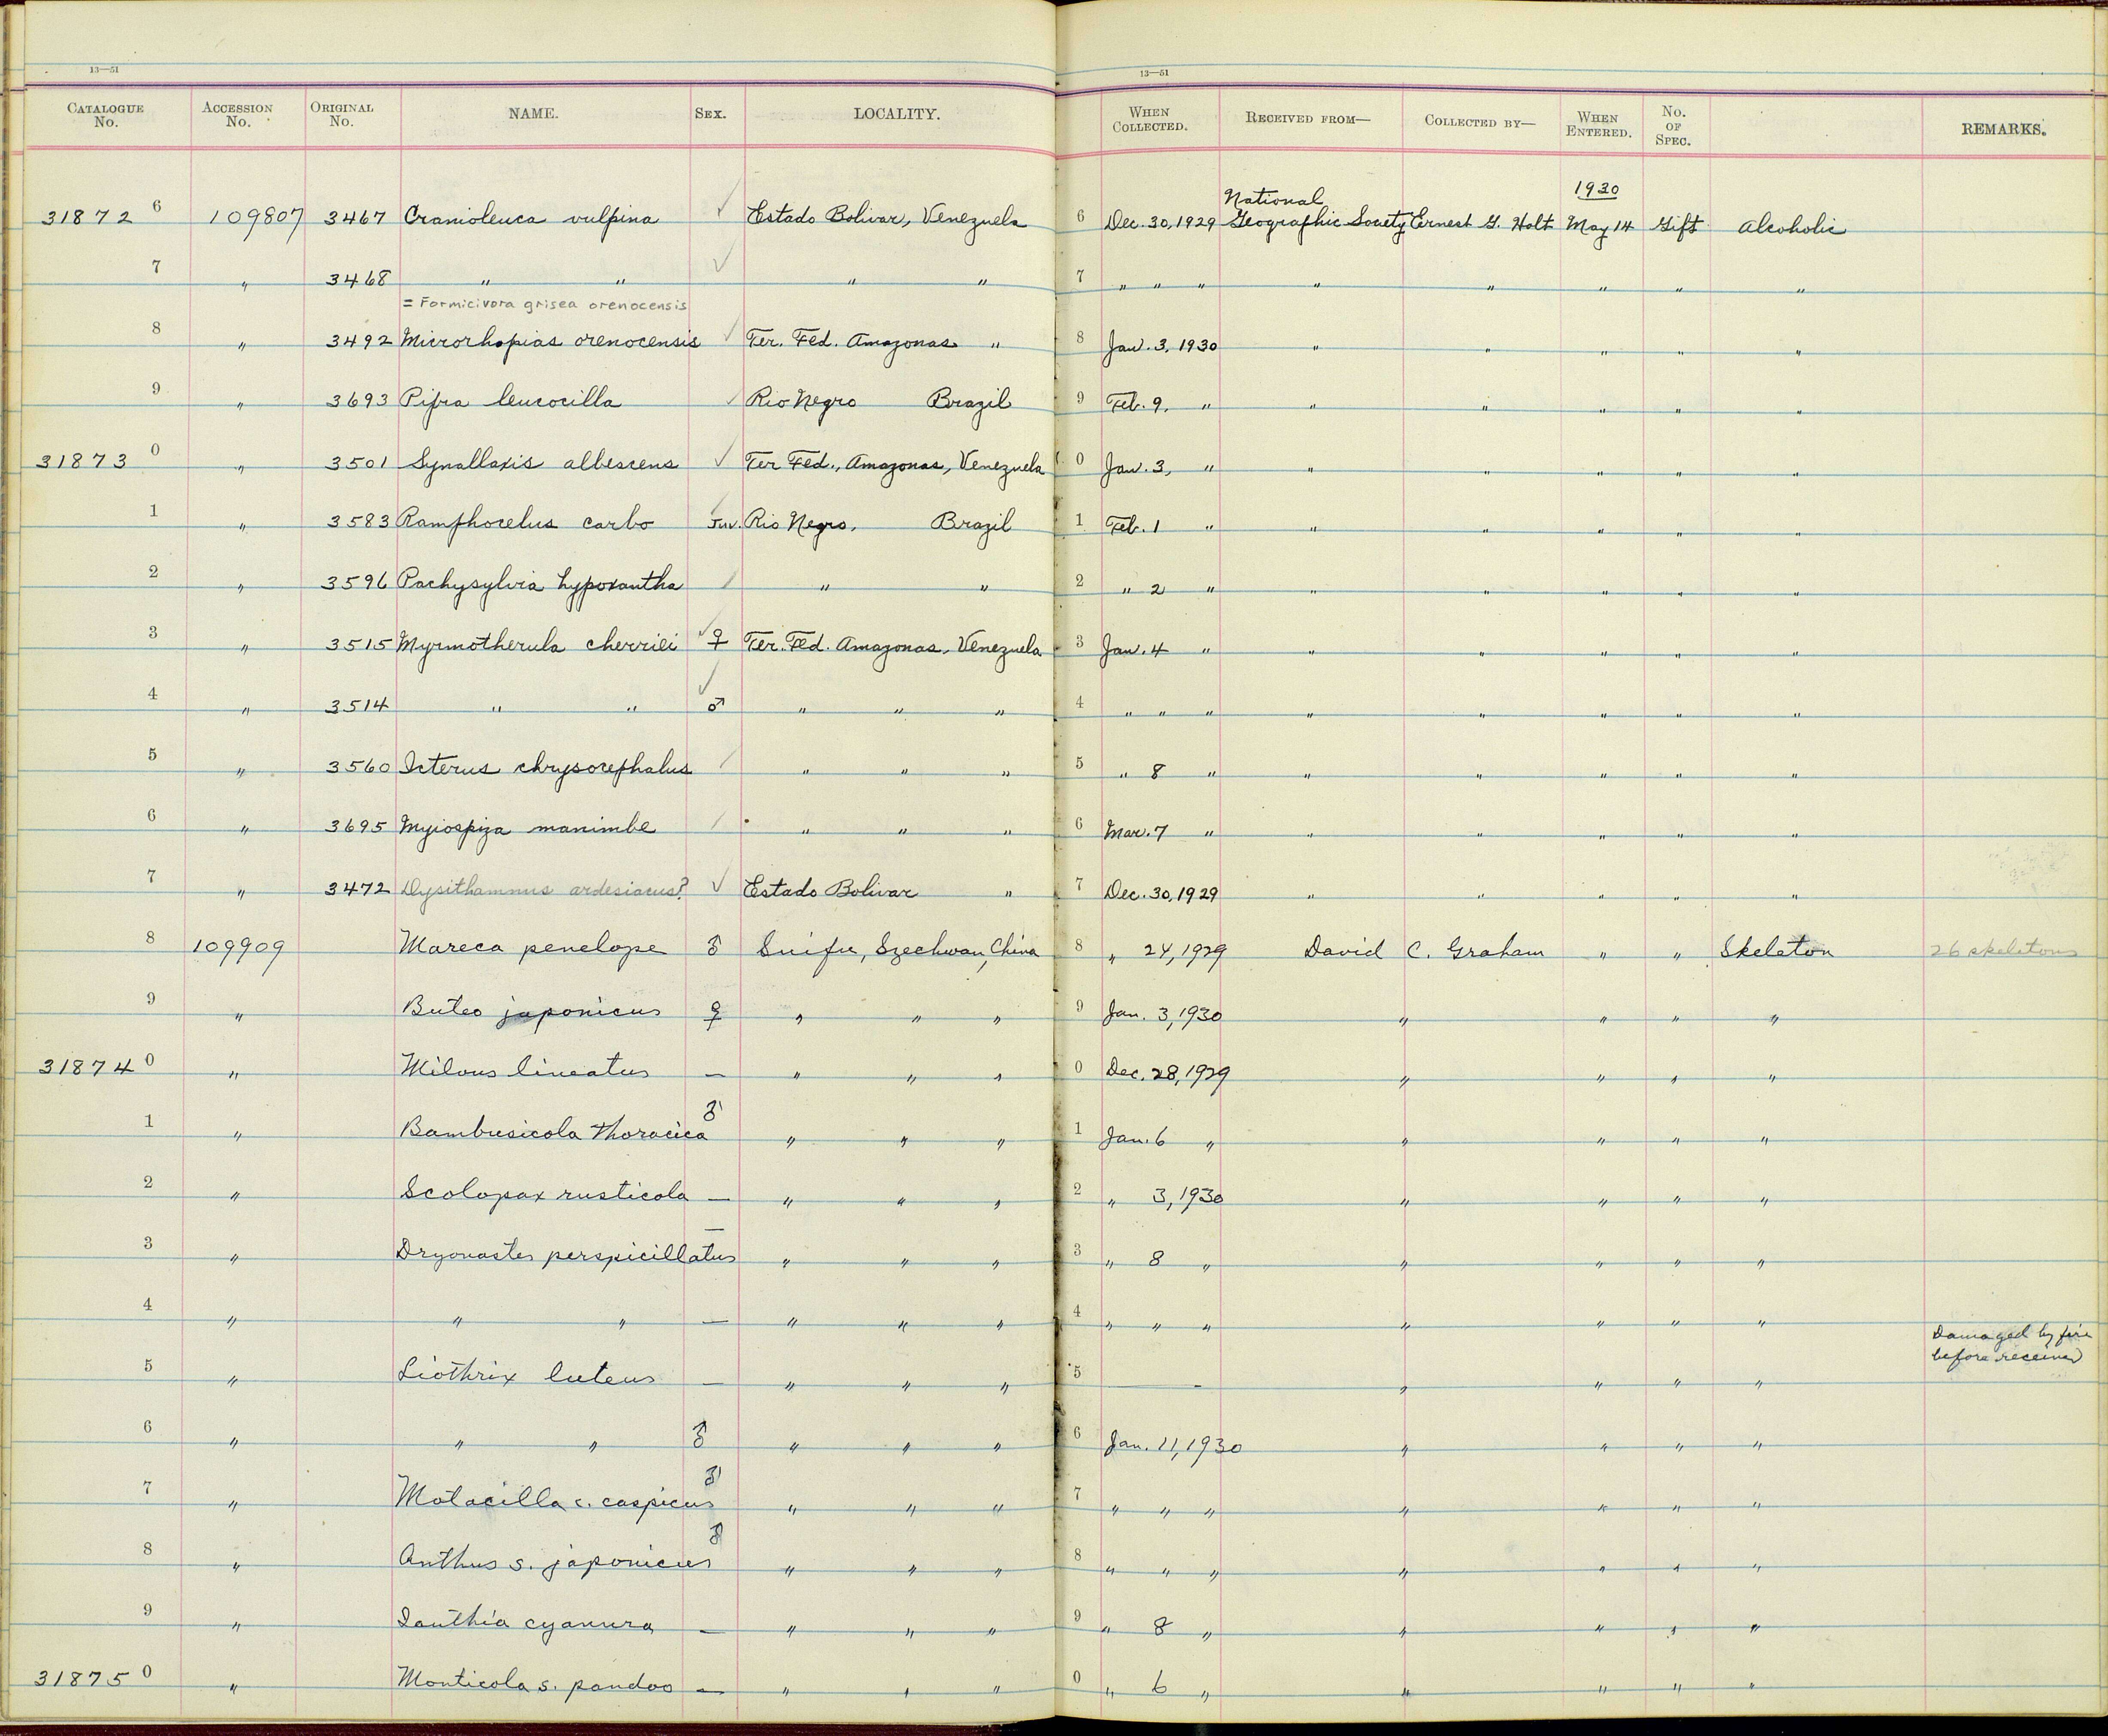 13—51
13—51
CATALOGUE No. ACCESSION No. ORIGINAL No. NAME. SEX. LOCALITY. WHEN COLLECTED. RECEIVED FROM— COLLECTED BY— WHEN ENTERED. No. OF SPEC. REMARKS.
1930
National
31872 6 109807 3467 Cranioleuca vulpina ✓ Estado Bolivar, Venezuela 6 Dec. 30, 1929 Geographic Society Ernest G. Holt May 14 Gift Alcoholic
7 " 3468 " " ✓ " " 7 " " " " " " " "
= Formicivora grisea orenocensis
8 " 3492 Microrhopias orenocensis ✓ Ter. Fed. Amazonas " 8 Jan. 3, 1930 " " " " "
9 " 3693 Pipra leucocilla ✓ Rio Negro Brazil 9 Feb. 9, " " " " " "
31873 0 " 3501 Synallaxis albescens ✓ Ter Fed., Amazonas, Venezuela 0 Jan. 3, " " " " " "
1 " 3583 Ramphocelus carbo ✓ Juv. Rio Negro, Brazil 1 Feb. 1 " " " " " "
2 " 3596 Pachysylvia hypoxantha ✓ " " 2 " 2 " " " " " "
3 " 3515 Myrmotherula cherriei ✓ ♀ Ter. Fed. Amazonas, Venezuela 3 Jan. 4 " " " " " "
4 " 3514 " " ✓ ♂ " " " 4 " " " " " " " "
5 " 3560 Icterus chrysocephalus ✓ " " " 5 " 8 " " " " " "
6 " 3695 Myiospiza manimbe ✓ " " " 6 Mar. 7 " " " " " "
7 " 3472 Dysithamnus ardesiacus? ✓ Estado Bolivar " 7 Dec. 30, 1929 " " " " "
8 109909 Mareca penelope ♂ Suifu, Szechwan, China 8 " 24, 1929 David C. Graham " " Skeleton 26 skeletons
9 " Buteo japonicus ♀ " " " 9 Jan. 3, 1930 " " " "
31874 0 " Milvus lineatus — " " " 0 Dec. 28, 1929 " " " "
1 " Bambusicola thoracica ♂ " " " 1 Jan. 6 " " " " "
2 " Scolopax rusticola — " " " 2 " 3, 1930 " " " "
3 " Dryonastes perspicillatus — " " " 3 " 8 " " " " "
4 " " " — " " " 4 " " " " " " "
Damaged by fire
before received
5 " Liothrix luteus — " " " 5 — " " " "
6 " " " ♂ " " " 6 Jan. 11, 1930 " " " "
7 " Motacilla c. caspicus ♂ " " " 7 " " " " " " "
8 " Anthus s. japonicus ♂ " " " 8 " " " " " " "
9 " Ianthia cyanura — " " " 9 " 8 " " " " "
31875 0 " Monticola s. pandoo — " " " 0 " 6 " " " " "